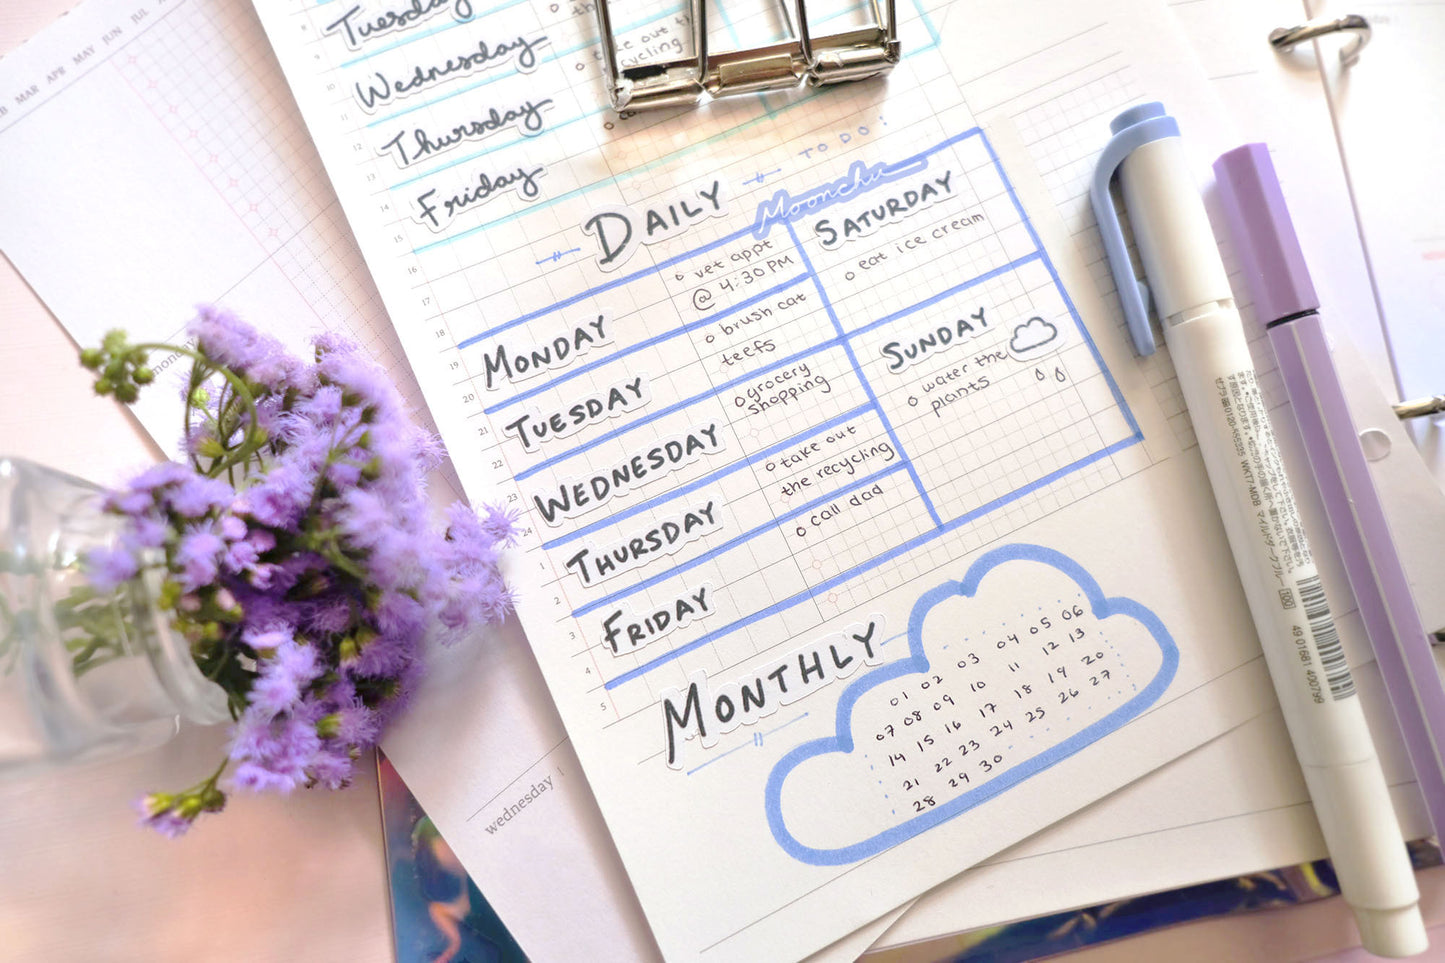 MAR APR MAY JUN JUL
Tuesday
Wednesday
take out
Thursday
Friday
TO DO!
DAILY
Moonchu
MONDAY
vet appt
@ 4:30 PM
TUESDAY
brush cat
teefs
WEDNESDAY
grocery
shopping
THURSDAY
take out
the recycling
FRIDAY
call dad
SATURDAY
eat ice cream
SUNDAY
water the
plants
MONTHLY
01 02 03 04 05 06
07 08 09 10 11 12 13
14 15 16 17 18 19 20
21 22 23 24 25 26 27
28 29 30
8
9
10
11
12
13
14
15
16
17
18
19
20
21
22
23
24
1
2
3
4
5
monday
wednesday
WKT7-MDB マイルドダークブルー 100
4901681400799